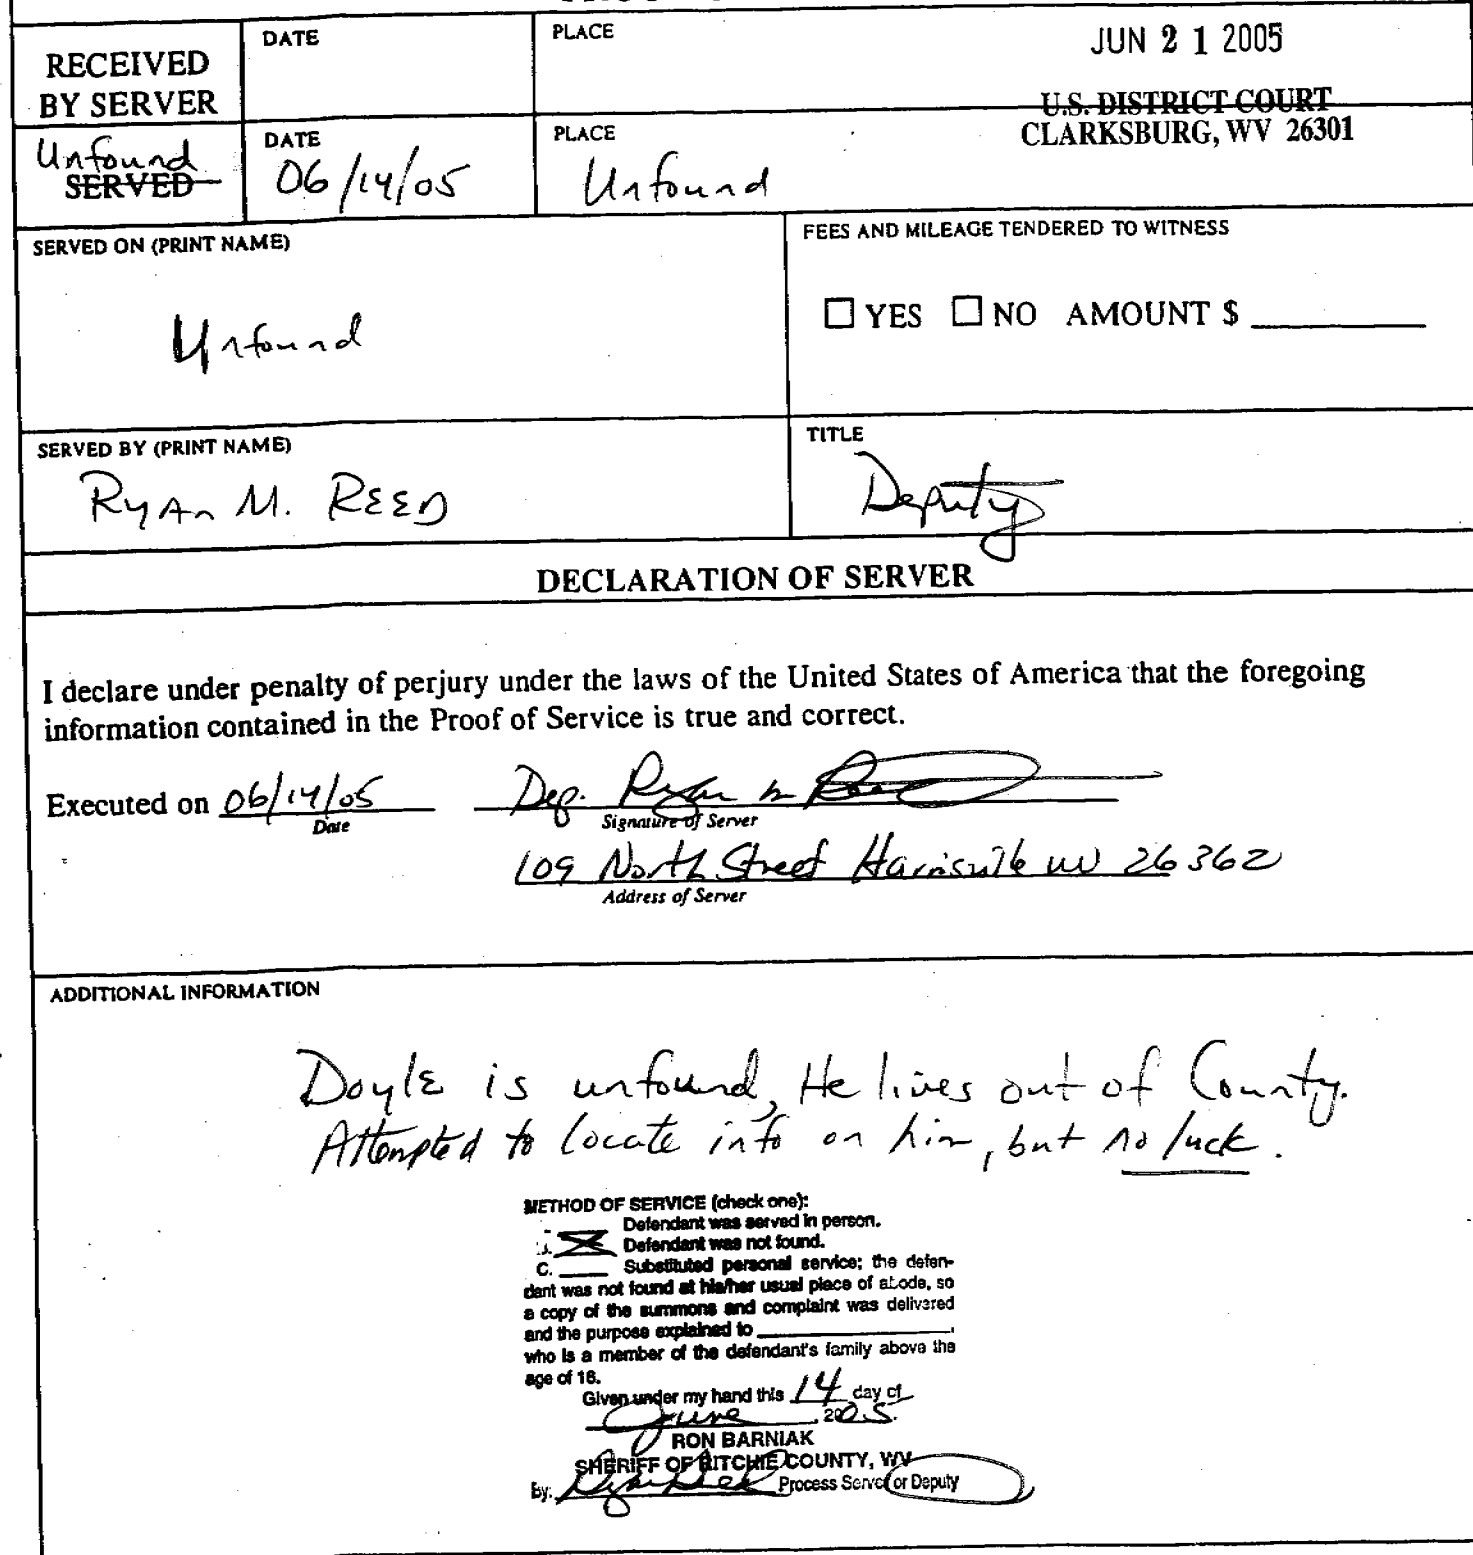 RECEIVED
BY SERVER
DATE
PLACE
JUN 21 2005
U.S. DISTRICT COURT
CLARKSBURG, WV 26301
Unfound
SERVED
DATE
06/14/05
PLACE
Unfound
SERVED ON (PRINT NAME)
Unfound
FEES AND MILEAGE TENDERED TO WITNESS
YES NO AMOUNT $
SERVED BY (PRINT NAME)
Ryan M. REED
TITLE
Deputy
DECLARATION OF SERVER
I declare under penalty of perjury under the laws of the United States of America that the foregoing
information contained in the Proof of Service is true and correct.
Executed on 06/14/05 Dep. Ryan M Reed
Date Signature of Server
109 North Street Harrisville WV 26362
Address of Server
ADDITIONAL INFORMATION
Doyle is unfound, He lives out of County.
Attempted to locate info on him, but no luck.
METHOD OF SERVICE (check one):
Defendant was served in person.
Defendant was not found.
C. Substituted personal service; the defen-
dant was not found at his/her usual place of abode, so
a copy of the summons and complaint was delivered
and the purpose explained to ,
who is a member of the defendant's family above the
age of 16.
Given under my hand this 14 day of
June, 2005.
RON BARNIAK
SHERIFF OF RITCHIE COUNTY, WV
By: Process Server or Deputy